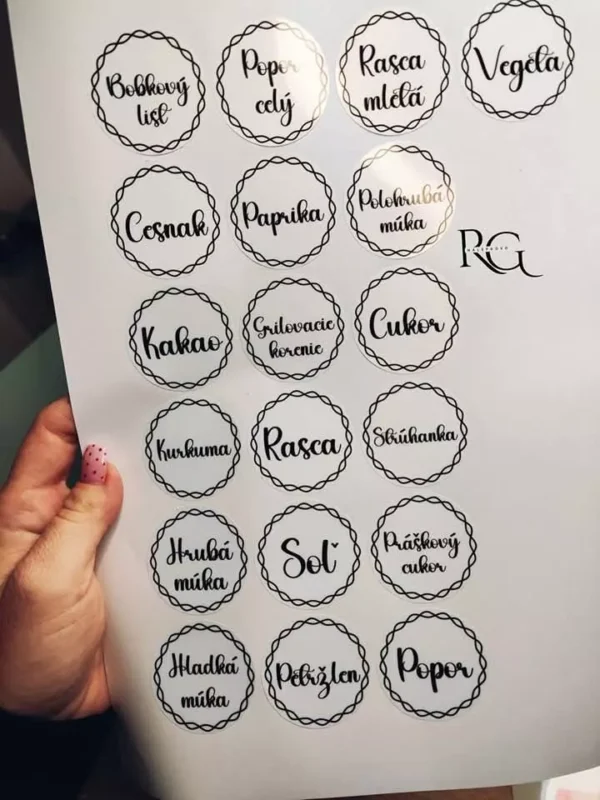 Bobkový
list
Popor
celý
Rasca
mletá
Vegeta
Cesnak
Paprika
Polohrubá
múka
RG
Kakao
Grilovacie
korenie
Cukor
Kurkuma
Rasca
Strúhanka
Hrubá
múka
Soľ
Práškový
cukor
Hladká
múka
Petržlen
Popor